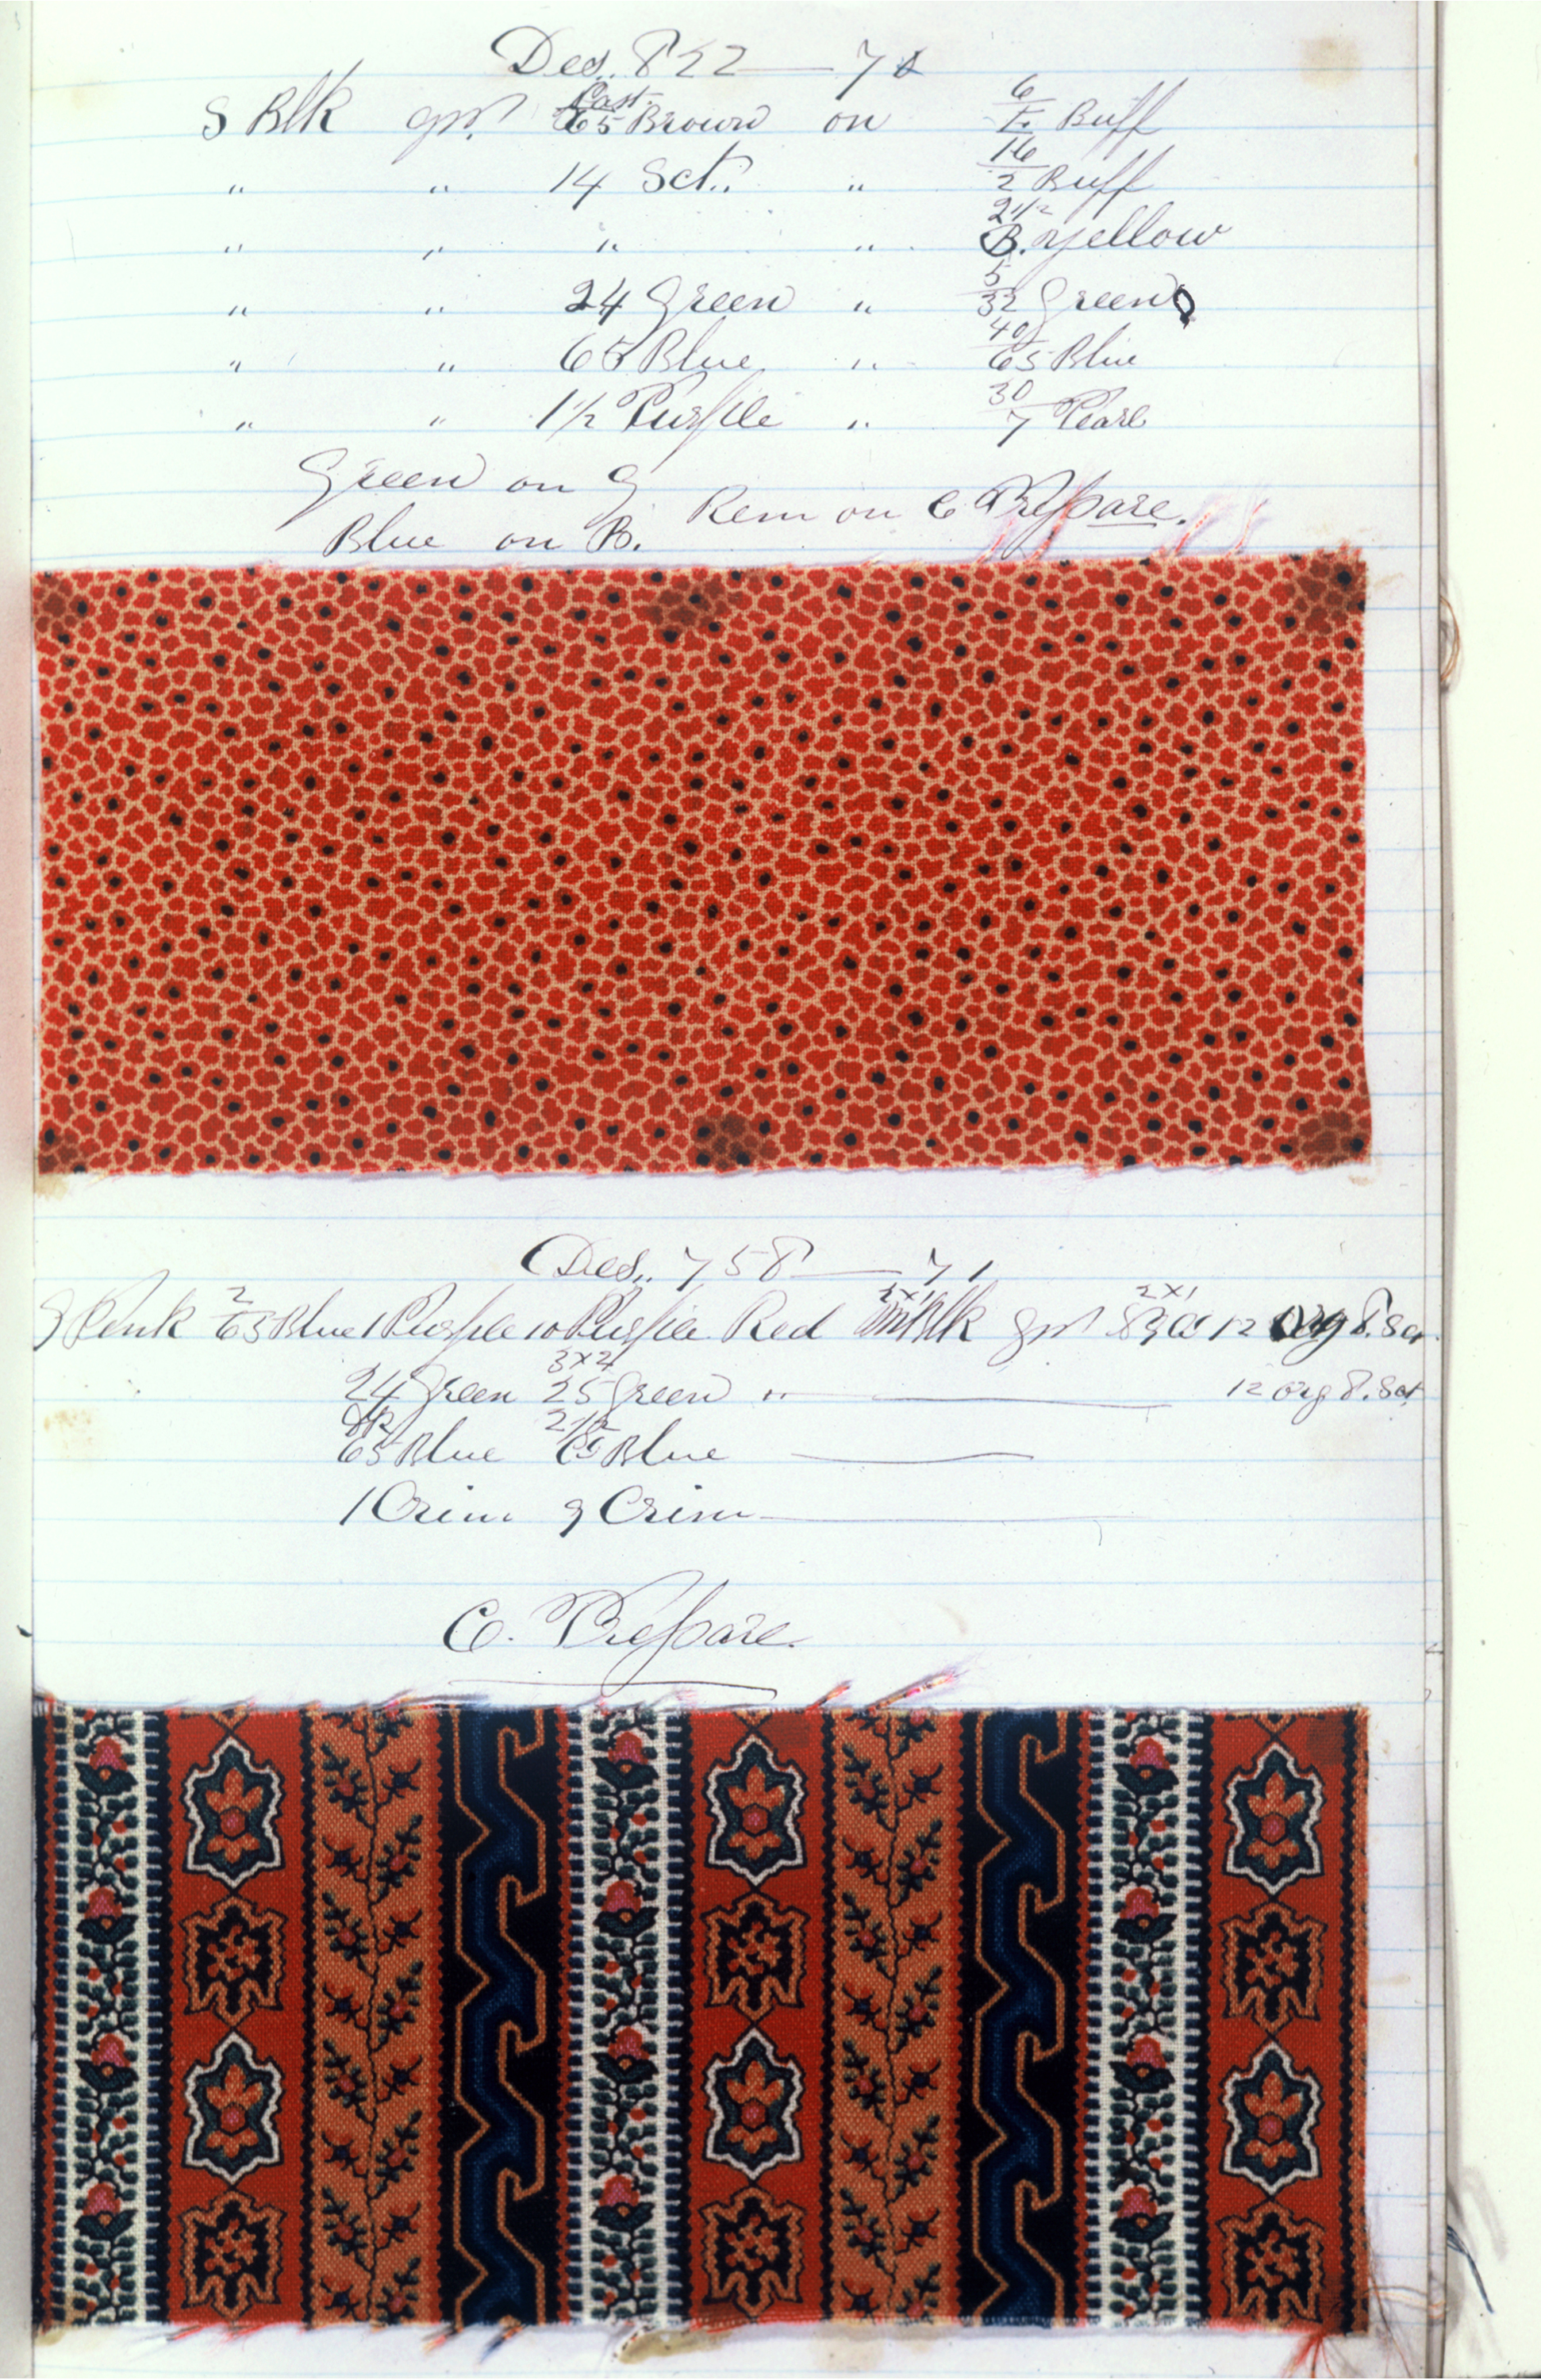 Des. 822 — 71
S Blk gr. Cast. 65 Brown on 6 Buff
" " 14 Sct. " 16/2 Buff
" " " " 2 1/2 B. Yellow
" " 24 Green " 5/32 Green
" " 65 Blue " 40/65 Blue
" " 1 1/2 Purple " 30/7 Pearl
Green on G
Rem on C Prepare.
Blue on B.
Des. 758 — 71
9 Pink 2/65 Blue 1 Purple 10 Purple Red 2x1 Blk gr 2x1 12 Org P. Sct
24 Green 3x2/25 Green " — 12 Org P. Sct
65 Blue 2 1/2 65 Blue —
1 Crim 9 Crim —
C. Prepare.